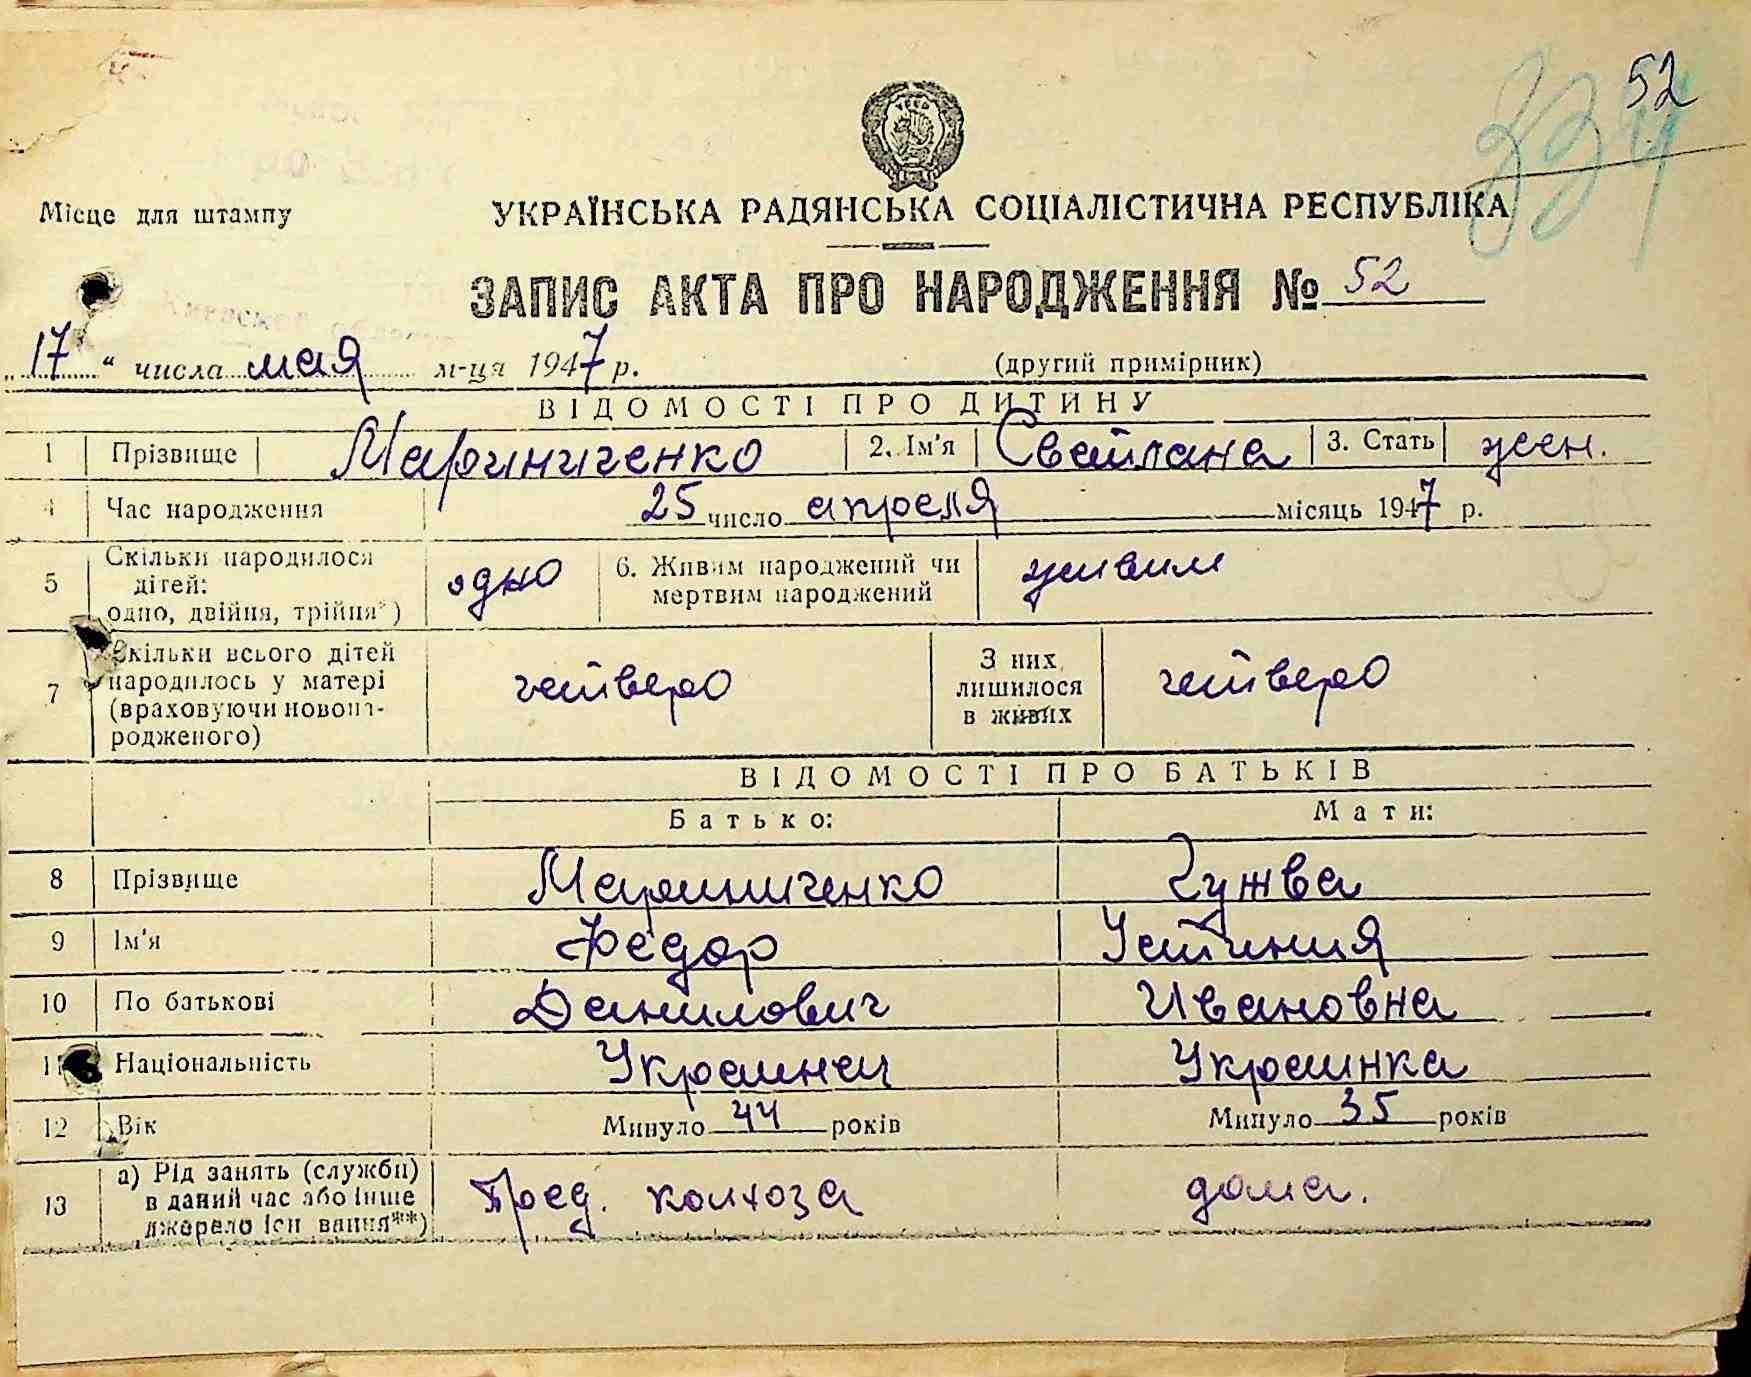 52
УССР
Місце для штампу
УКРАЇНСЬКА РАДЯНСЬКА СОЦІАЛІСТИЧНА РЕСПУБЛІКА
ЗАПИС АКТА ПРО НАРОДЖЕННЯ № 52
„17“ числа мая м-ця 1947 р. (другий примірник)
ВІДОМОСТІ ПРО ДИТИНУ
1 Прізвище Мариниченко 2. Ім'я Светлана 3. Стать жен.
4 Час народження 25 число апреля місяць 1947 р.
5 Скільки народилося дітей: одно, двійня, трійня*) одно 6. Живим народжений чи мертвим народжений живим
7 Скільки всього дітей народилось у матері (враховуючи новона-родженого) четверо З них лишилося в живих четверо
ВІДОМОСТІ ПРО БАТЬКІВ
Батько: Мати:
8 Прізвище Мариниченко Чужва
9 Ім'я Федор Устиния
10 По батькові Данилович Ивановна
11 Національність Украинец Украинка
12 Вік Минуло 44 років Минуло 35 років
13 а) Рід занять (служби) в даний час або інше джерело існування**) Пред. колхоза дома.